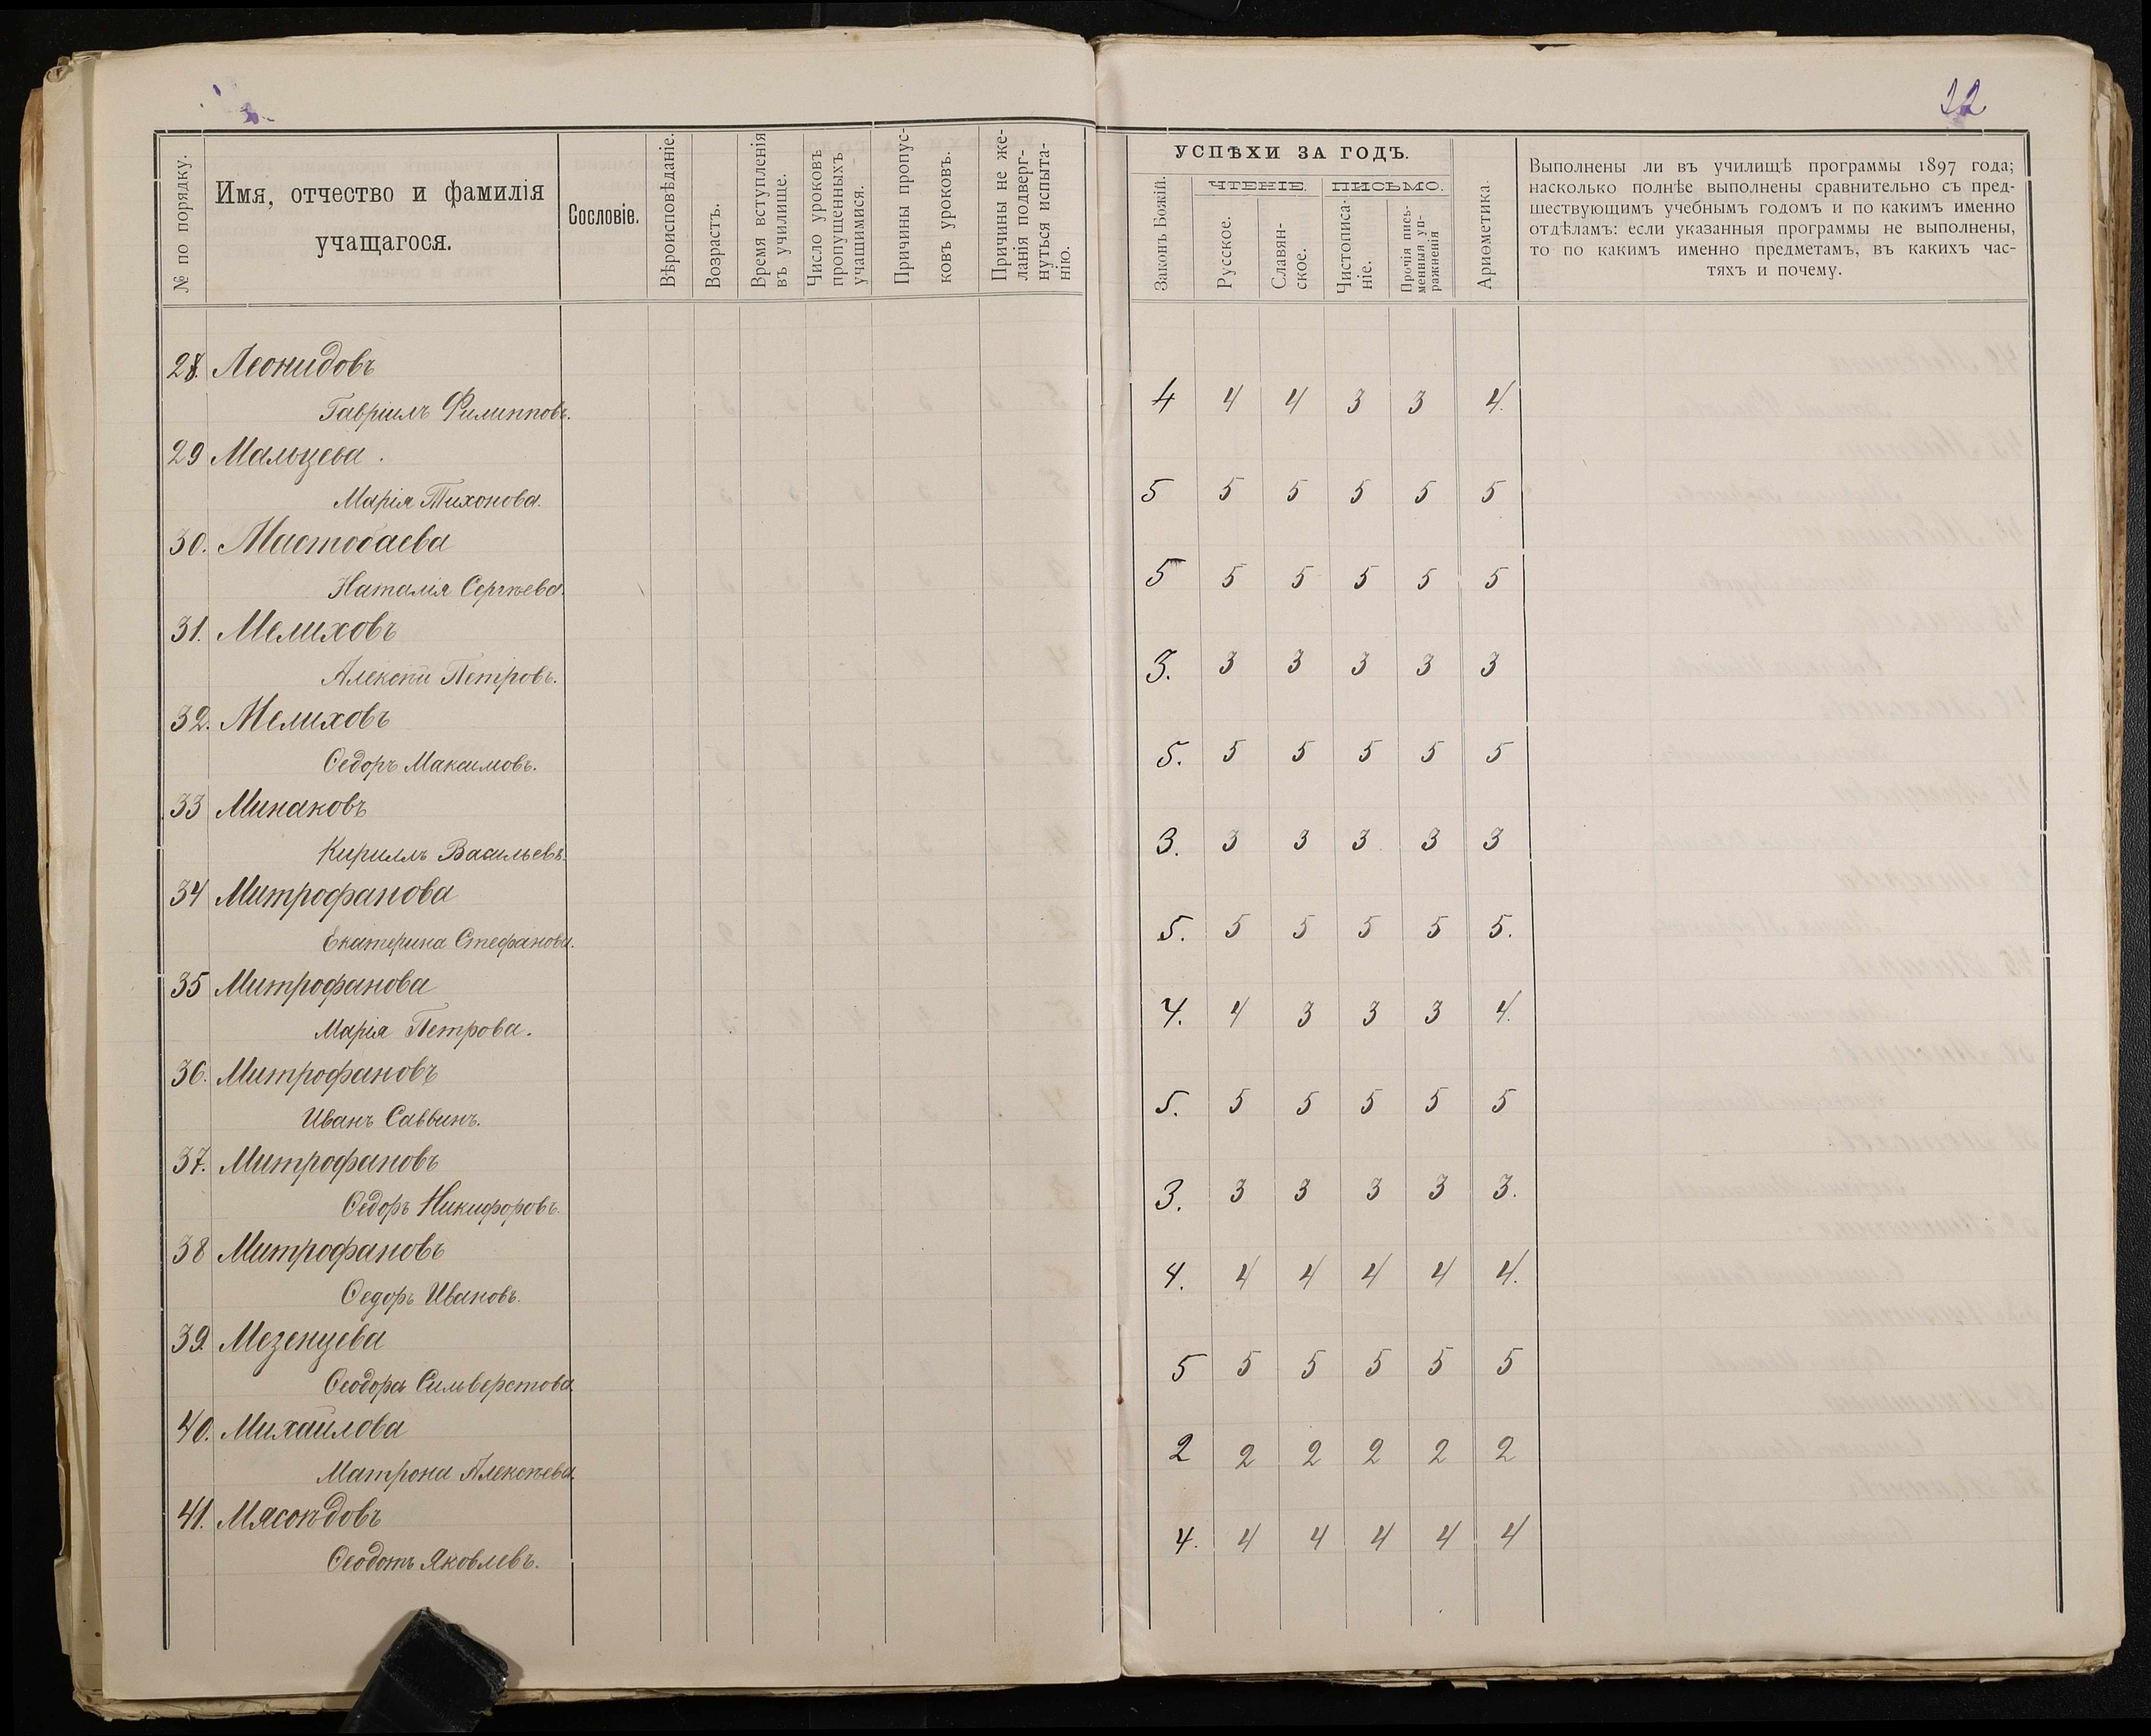 22
№ по порядку.
Имя, отчество и фамилія
учащагося.
Сословіе.
Вѣроисповѣданіе.
Возрастъ.
Время вступленія
въ училище.
Число уроковъ
пропущенныхъ
учащимися.
Причины пропус-
ковъ уроковъ.
Причины не же-
ланія подверг-
нуться испыта-
нію.
УСПѢХИ ЗА ГОДЪ.
Законъ Божій.
ЧТЕНІЕ.
ПИСЬМО.
Русское.
Славян-
ское.
Чистописа-
ніе.
Прочія пись-
менныя уп-
ражненія
Ариѳметика.
Выполнены ли въ училищѣ программы 1897 года;
насколько полнѣе выполнены сравнительно съ пред-
шествующимъ учебнымъ годомъ и по какимъ именно
отдѣламъ: если указанныя программы не выполнены,
то по какимъ именно предметамъ, въ какихъ час-
тяхъ и почему.
28. Леонидовъ
Гавріилъ Филипповъ. 4 4 4 3 3 4.
29 Мальцева.
Марія Тихонова. 5 5 5 5 5 5
30. Мастобаева
Наталія Сергѣева. 5 5 5 5 5 5
31. Мелиховъ
Алексѣй Петровъ. 3. 3 3 3 3 3
32. Мелиховъ
Ѳедоръ Максимовъ. 5. 5 5 5 5 5
33 Минаковъ
Кириллъ Васильевъ. 3. 3 3 3 3 3
34 Митрофанова
Екатерина Стефанова. 5. 5 5 5 5 5.
35 Митрофанова
Марія Петрова. 4. 4 3 3 3 4.
36. Митрофановъ
Иванъ Саввинъ. 5. 5 5 5 5 5
37. Митрофановъ
Ѳедоръ Никифоровъ. 3. 3 3 3 3 3.
38 Митрофановъ
Ѳедоръ Ивановъ. 4. 4 4 4 4 4.
39. Мезенцева
Ѳеодора Сильверстова. 5 5 5 5 5 5
40. Михайлова
Матрона Алексѣева. 2 2 2 2 2 2
41. Мясоѣдовъ
Ѳеодотъ Яковлевъ. 4. 4 4 4 4 4